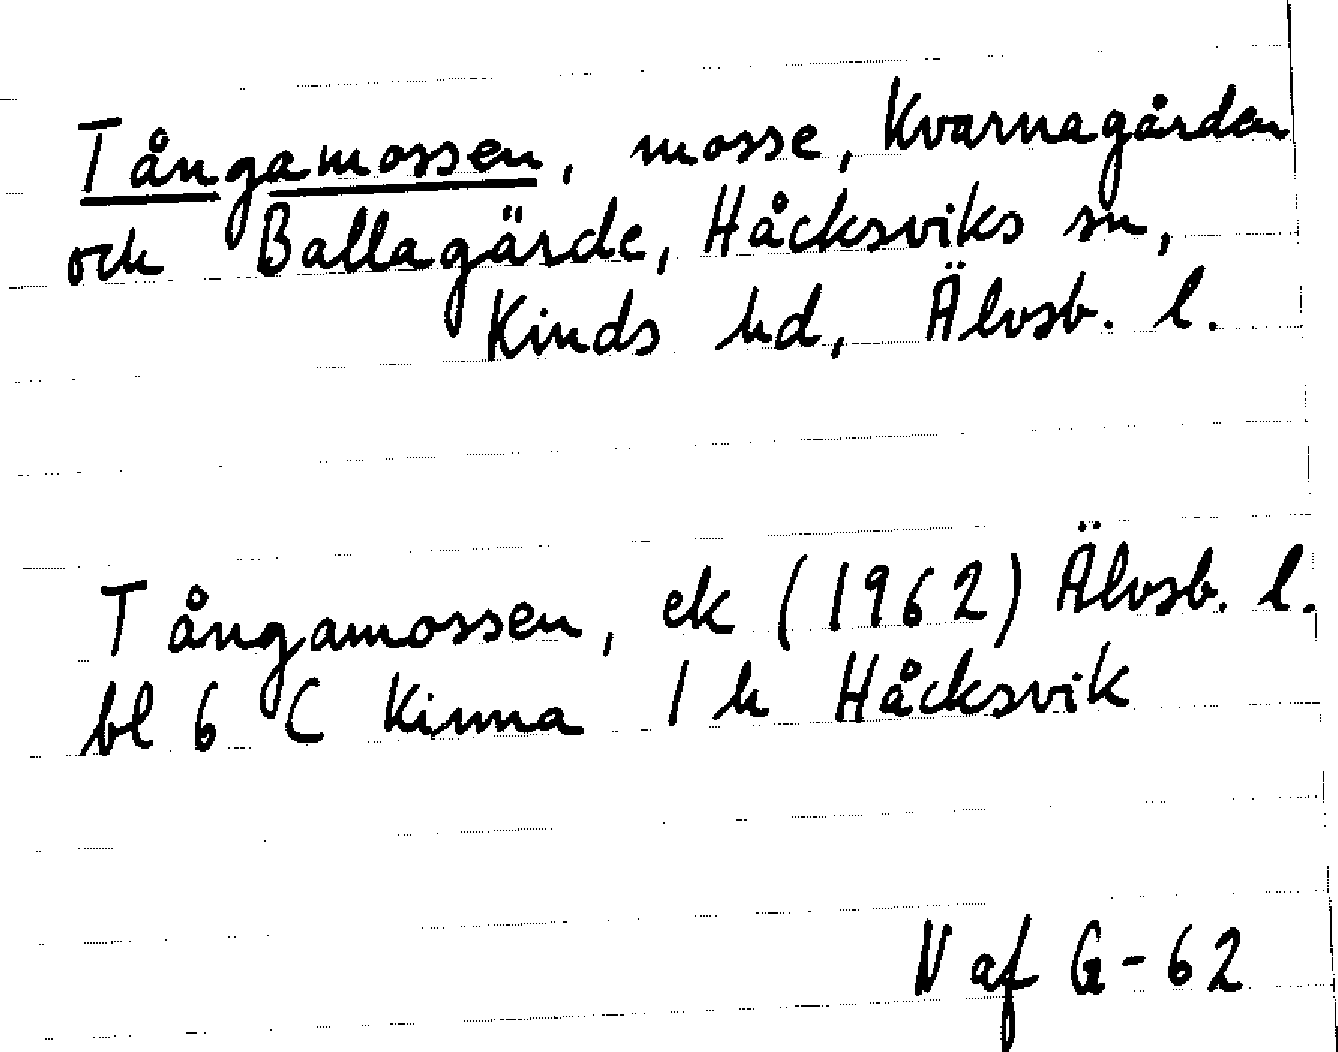 Tångamossen, mosse, Kvarnagården
och Ballagärde, Håcksviks sn,
Kinds hd, Älvsb. l.
Tångamossen, ek (1962) Älvsb. l.
bl 6 C Kinna 1 h Håcksvik
V af G-62